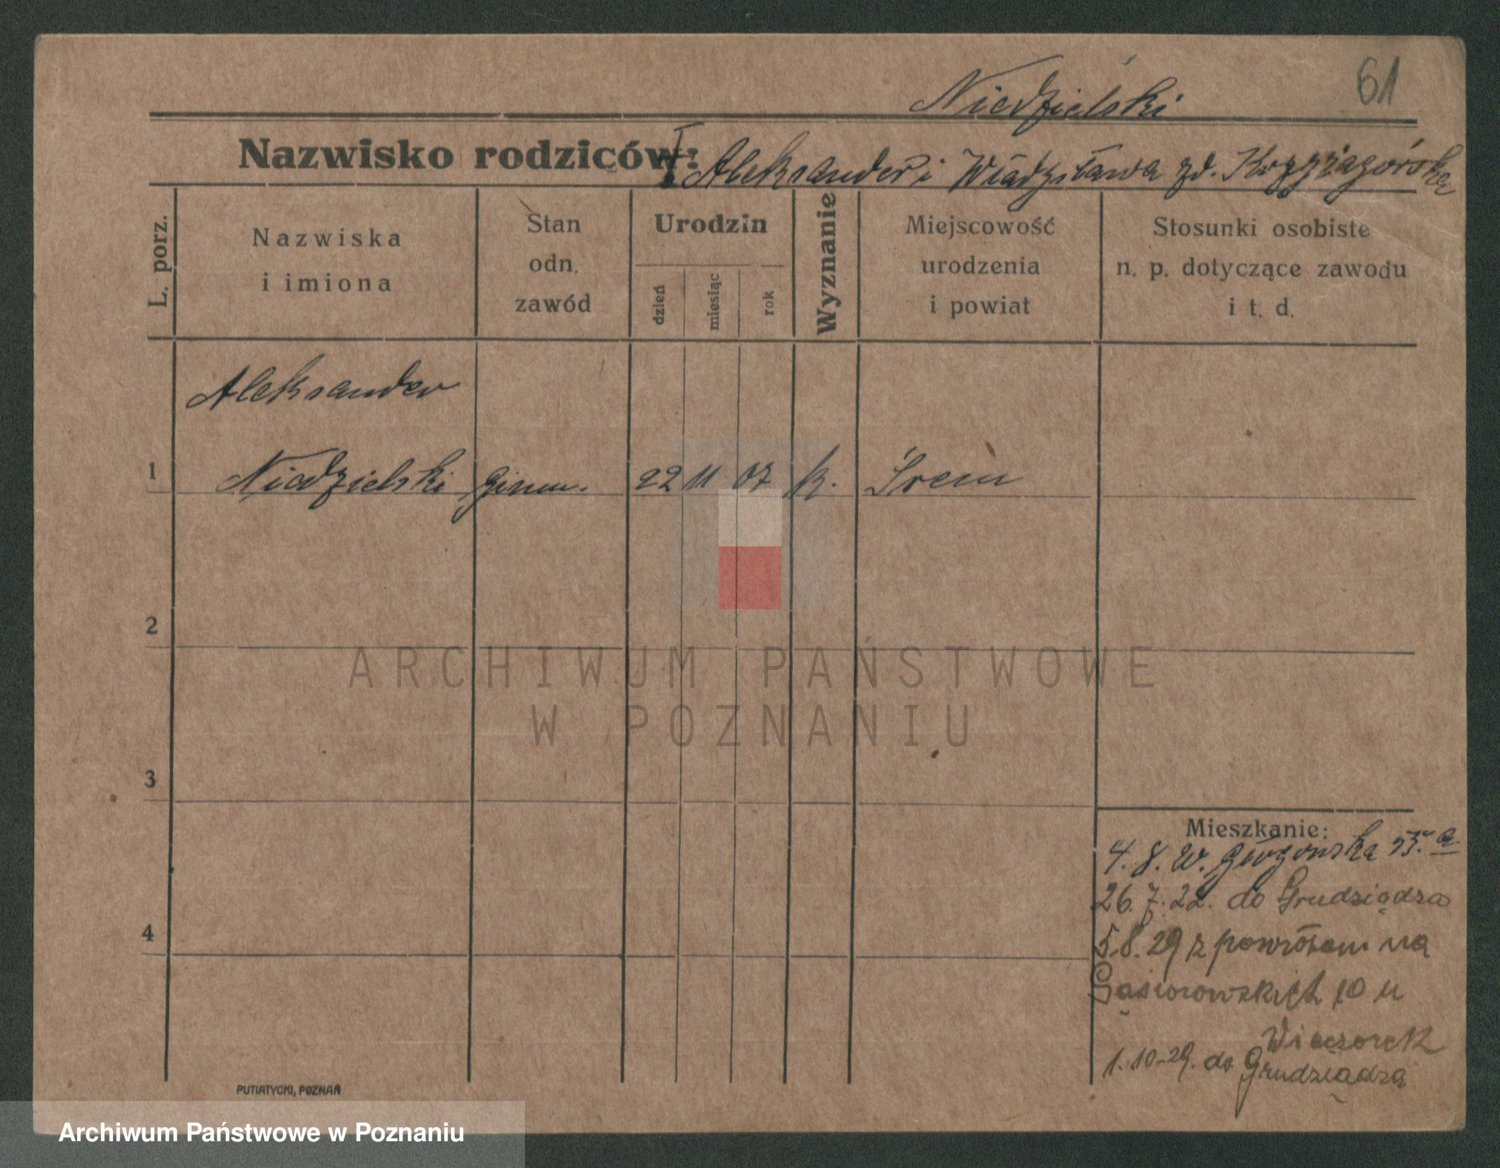 Niedzielski 61
Nazwisko rodziców: Aleksander i Władysława zd. Krzyżagórska
L. porz.
Nazwiska
i imiona
Stan
odn.
zawód
Urodzin
dzień
miesiąc
rok
Wyznanie
Miejscowość
urodzenia
i powiat
Stosunki osobiste
n. p. dotyczące zawodu
i t. d.
Aleksander
1 Niedzielski gimn. 22 11 07 k. Śrem
2
ARCHIWUM PAŃSTWOWE
W POZNANIU
3
Mieszkanie:
4. 8. W. Głogowska 55. a
26. 7. 22. do Grudziądza
4
5.8.29 z powrotem na
Gąsiorowskich 10 u
Wieczorek
1.10-29. do Grudziądza
PUTIATYCKI, POZNAŃ
Archiwum Państwowe w Poznaniu